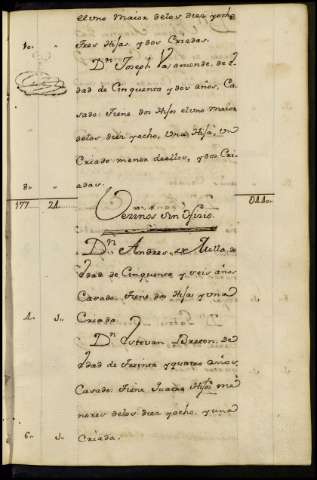 el uno maior delos diez yocho
10. Tres Hijas, y dos Criadas.
Dn. Joseph Vaamonde, de e
dad de Cinquenta y dos años, Ca
sado: tiene dos Hijos el uno Maior
delos diez yocho, Una Hija, Un
Criado menor de ellos, y dos Cri
8. adas.
177 21 0110.
Vezinos sin oficio.
Dn. Andres de Aella, de
edad de Cinquenta y seis años
Casado: tiene dos Hijas y una
4. Criada.
Dn. Estevan Breton, de
edad de treinta y quatro años,
Casado: tiene quatro Hijos me
nores delos diez yocho, y una
6. Criada.